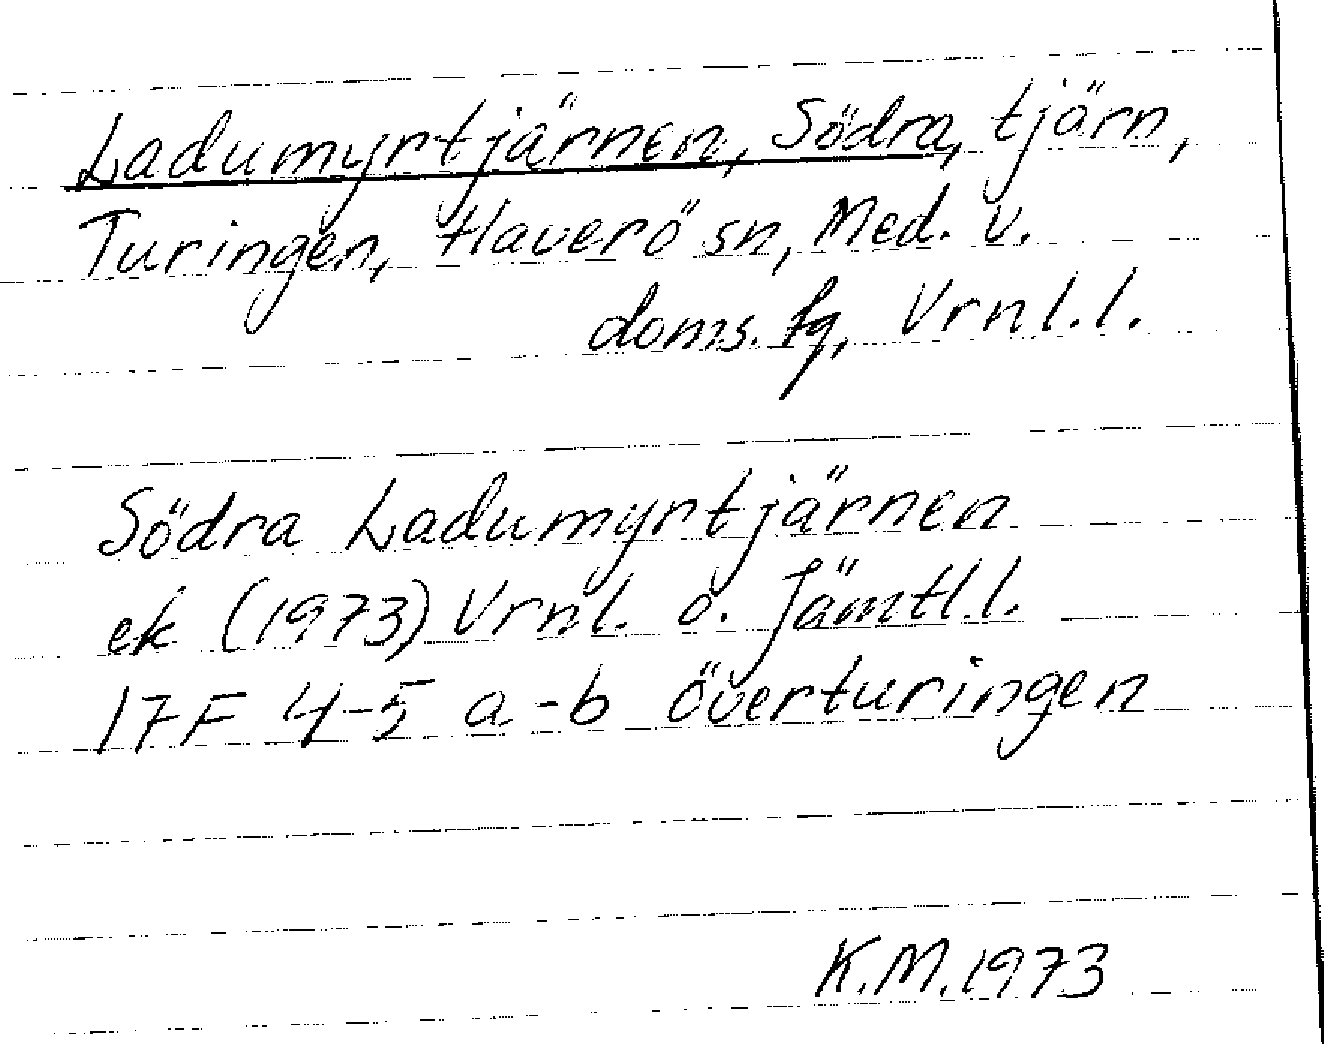 Ladumyrtjärnen, Södra, tjärn,
Turingen, Haverö sn, Med. v.
doms. fg, Vrnl.l.
Södra Ladumyrtjärnen
ek (1973) Vrnl. o. Jämtl.l.
17F 4-5 a-b överturingen
K.M.1973